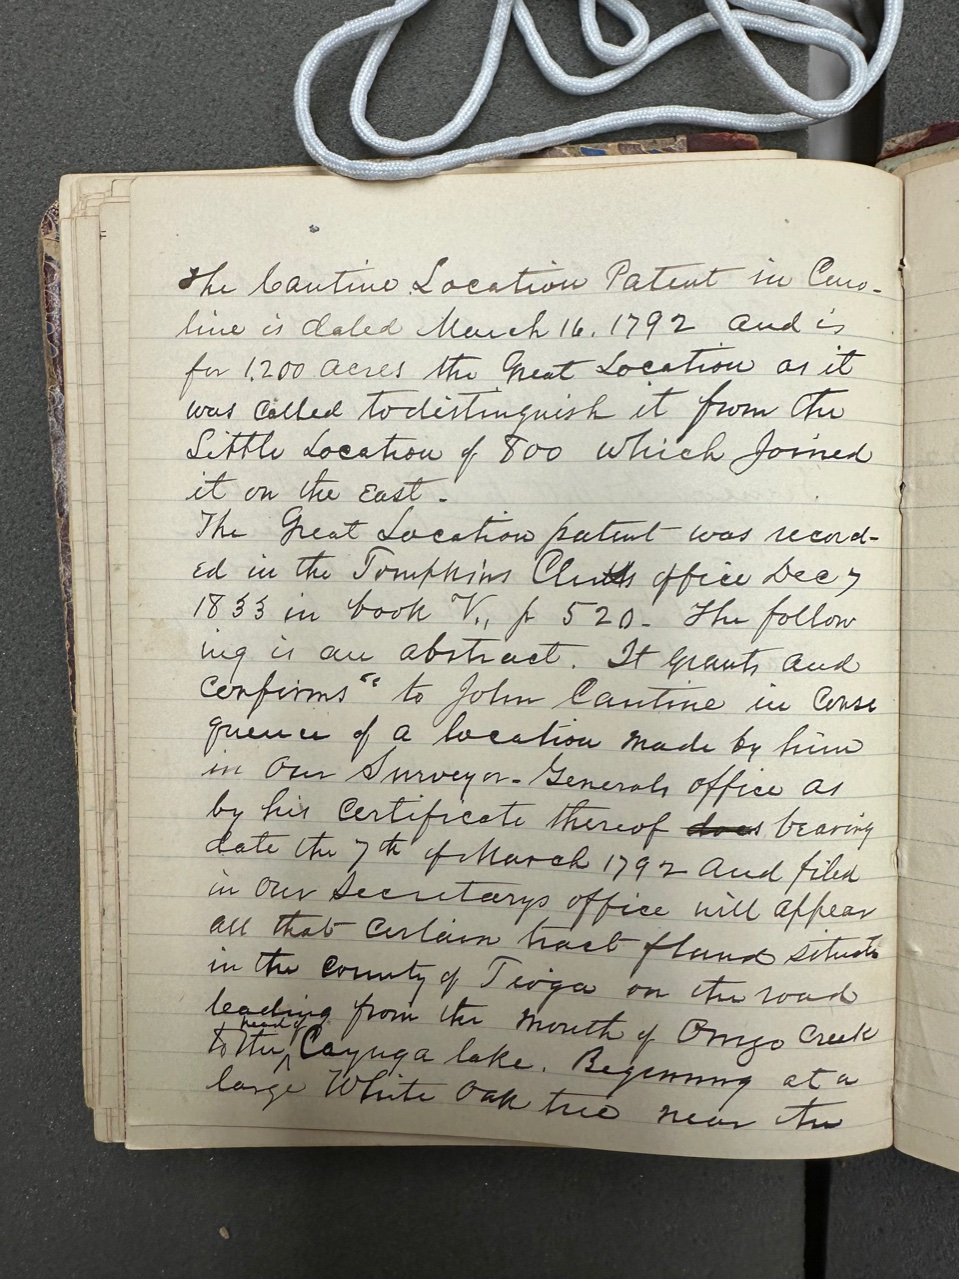 The Cantine Location Patent in Caro-
line is dated March 16, 1792 and is
for 1200 acres the Great Location as it
was called to distinguish it from the
Little Location of 800 which Joined
it on the East.
The Great Location patent was record-
ed in the Tompkins Clerks office Dec 7
1833 in book V., p 520. The follow
ing is an abstract. It grants and
confirms " to John Cantine in conse
quence of a location made by him
in our Surveyor-Generals office as
by his certificate thereof bearing
date the 7th of March 1792 and filed
in our Secretarys office will appear
all that certain tract of land situate
in the county of Tioga on the road
leading from the mouth of Owego Creek
to the head of Cayuga lake. Beginning at a
large White Oak tree near the